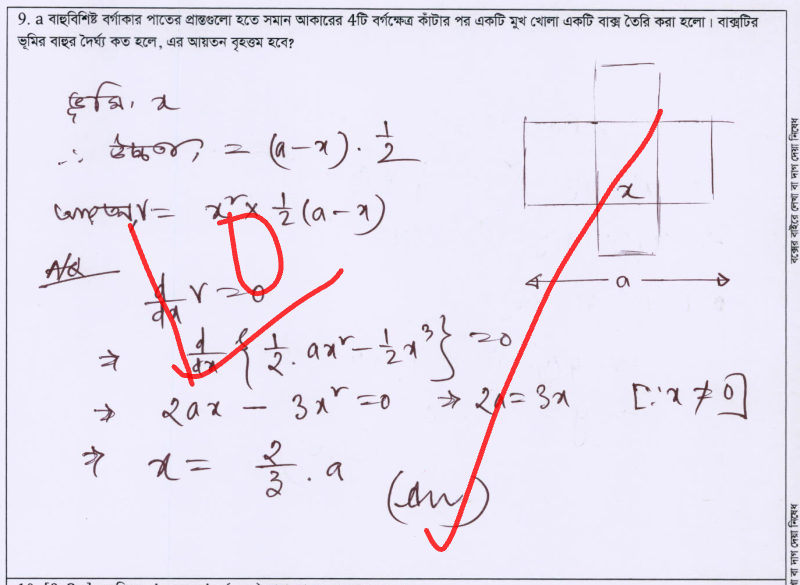 9. a বাহুবিশিষ্ট বর্গাকার পাতের প্রান্তগুলো হতে সমান আকারের 4টি বর্গক্ষেত্র কাঁটার পর একটি মুখ খোলা একটি বাক্স তৈরি করা হলো। বাক্সটির
ভূমির বাহুর দৈর্ঘ্য কত হলে, এর আয়তন বৃহত্তম হবে?
ভূমি, x
∴ উচ্চতা, = (a-x) · 1/2
আয়তন, V = x² × 1/2 (a-x)
x
a
A/Q
d/dx V = 0
⇒ d/dx { 1/2 · ax² - 1/2 x³ } = 0
⇒ 2ax - 3x² = 0 ⇒ 2a = 3x [∵ x ≠ 0]
⇒ x = 2/3 · a
(Ans)
বক্সের বাইরে লেখা বা দাগ দেয়া নিষেধ
বা দাগ দেয়া নিষেধ